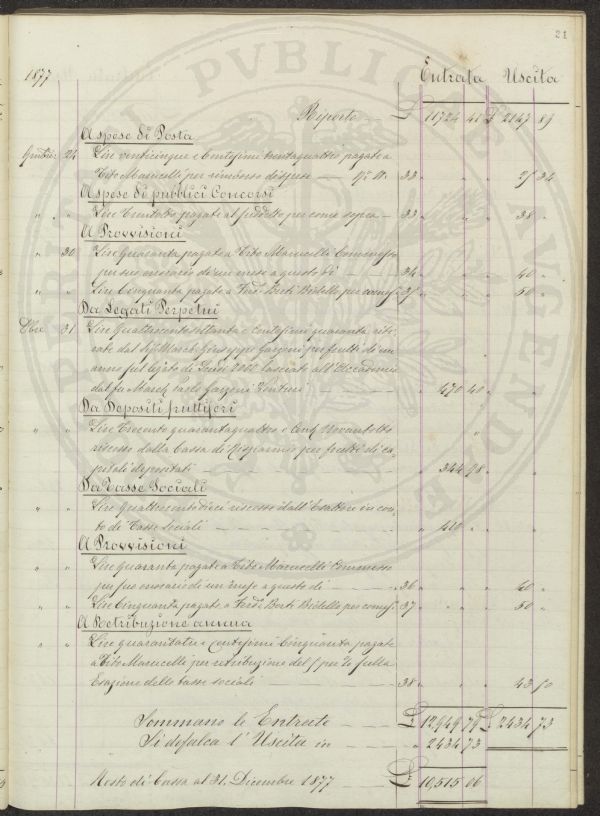 21
1877 Entrata Uscita
Riporto — £ 11724 41 £ 2147 89
A spese di Posta
24 Lire venticinque e Centesimi trentaquattro pagate a
Tito Marucelli per rimborso di spese — No. 33 25 34
A spese di pubblici Concorsi
" " Lire Trentotto pagate al suddetto per come sopra — 33 38 "
A Provvisioni
" 30 Lire Quaranta pagate a Tito Marucelli Commesso
per suo onorario di un mese a questo dì — 34 40 "
" " Lire Cinquanta pagate a Ferdo Berti Bidello per come s. 35 50 "
Da Legati Perpetui
Xbre 31 Lire Quattrocentosettanta e Centesimi quaranta riti-
rate dal Sigr March. Giuseppe Gazzoni per frutti di un
anno sul legato di Scudi 2000 lasciato all'Accademia
dal fu March. Paolo Gazzoni Venturi — 470 40
Da Depositi fruttiferi
" " Lire Trecento quarantaquattro e Cent. Novantotto
riscosse dalla Cassa di Risparmio per frutti di ca-
pitali depositati — 344 98
Da Tasse Sociali
" " Lire quattrocentodieci riscosse dall'Esattore in con-
to di Tasse sociali — 410 "
A Provvisioni
" " Lire quaranta pagate a Tito Marucelli Commesso
per suo onorario di un mese a questo dì — 36 40 "
" " Lire Cinquanta pagate a Ferdo Berti Bidello per come s. 37 50 "
A Retribuzione annua
" " Lire quarantatre e centesimi Cinquanta pagate
a Tito Marucelli per retribuzione del 5 per % sulla
Esazione delle tasse sociali — 38 43 50
Sommano le Entrate — £ 12949 79 £ 2434 73
Si defalca l'Uscita in — " 2434 73
Resto di Cassa al 31. Dicembre 1877 — £ 10515 06